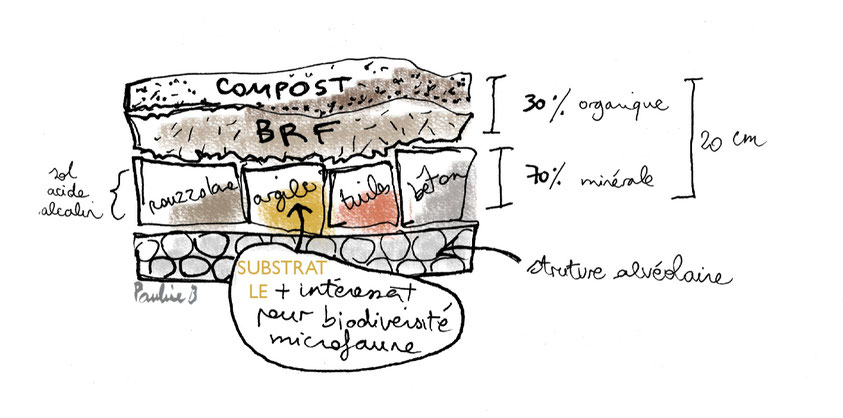 COMPOST
30% organique
BRF
20 cm
sol
acide
alcalin
pouzzolane
argile
tuiles
béton
70% minérale
struture alvéolaire
Pauline B
SUBSTRAT
LE + intéressat
pour biodiversité
microfaune